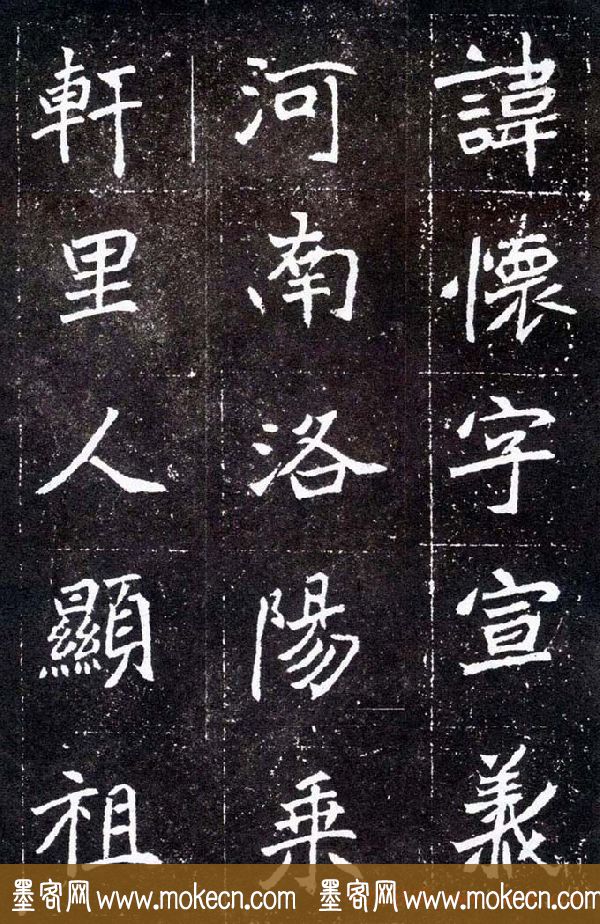 諱懷字宣義
河南洛陽乗
軒里人顯祖
墨客网 www.mokecn.com 墨客网 www.mokecn.com